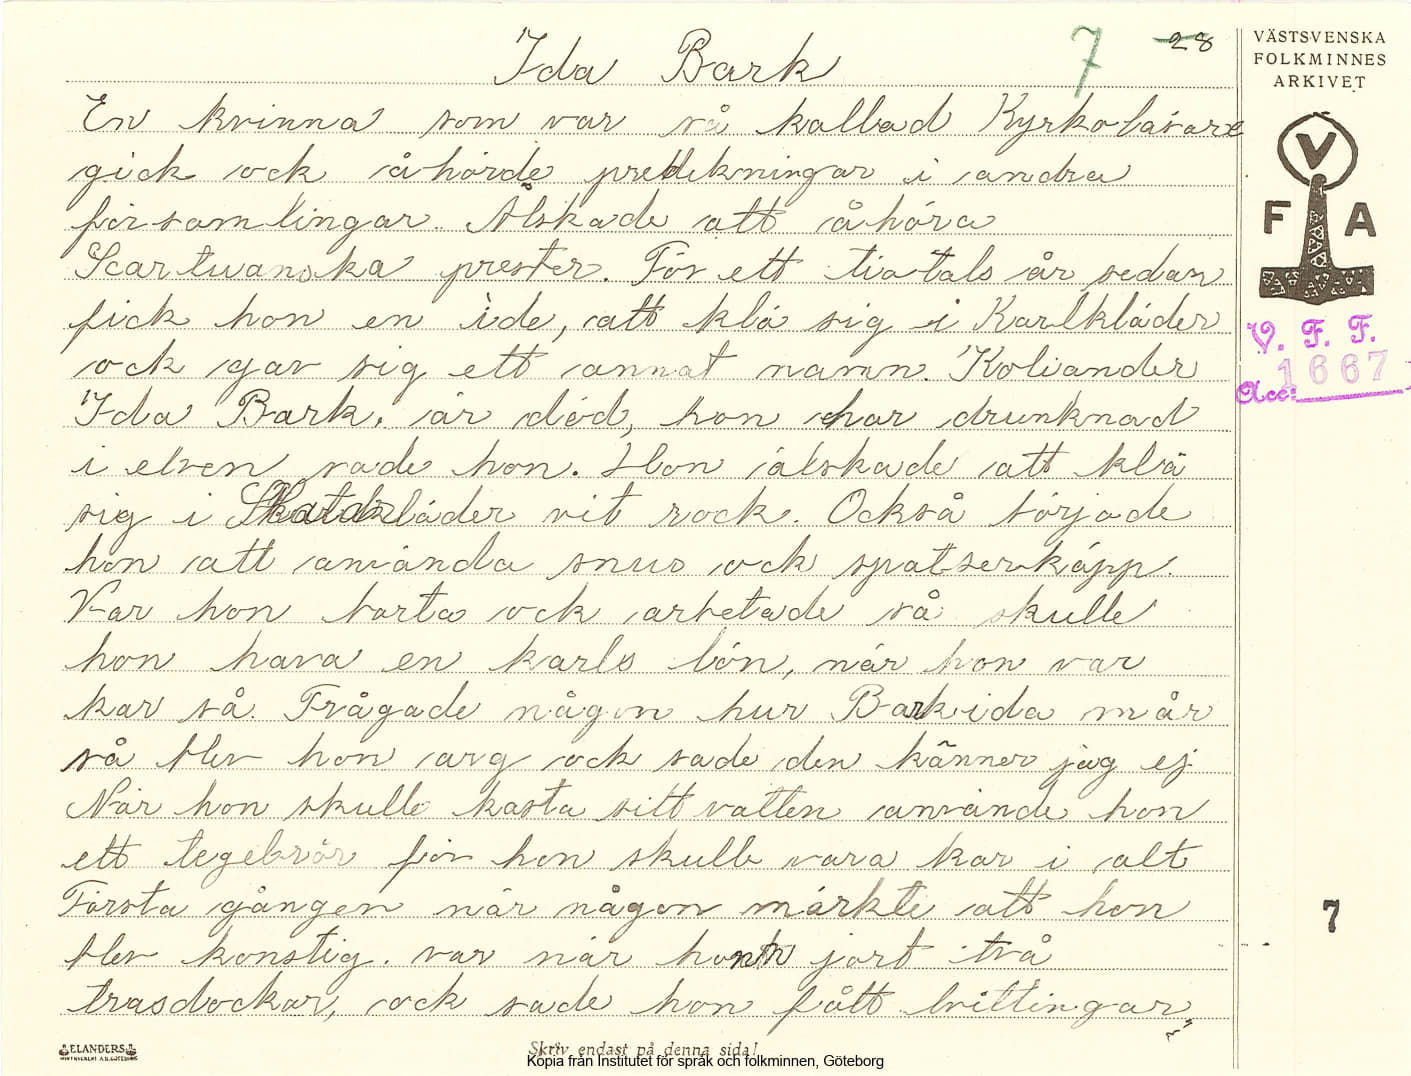 Ida Bark
7
28
VÄSTSVENSKA
FOLKMINNES
ARKIVET
En kvinna som var så kallad Kyrkoläsare
gick ock åhörde predikningar i andra
församlingar. Älskade att åhöra
Scartuanska prester. För ett tiotals år sedan
fick hon en ide, att klä sig i Karlkläder
ock gav sig ett annat namn. Koliander
Ida Bark. är död, hon har drunknad
i elven sade hon. Hon älskade att klä
sig i kläder vit rock. Också började
hon att använda snus ock spatserkäpp.
Var hon borta ock arbetade så skulle
hon hava en karls lön, när hon var
kar så. Frågade någon hur Barkida mår
så blev hon arg ock sade den känner jag ej
När hon skulle kasta sitt vatten använde hon
ett tegelrör för hon skulle vara kar i alt
Första gången när någon märkte att hon
blev konstig. var när hon jort två
trasdockar, ock sade hon fått tvillingar
V
F A
V. F. F.
Acc: 1667
7
ELANDERS
Skriv endast på denna sida!
Kopia från Institutet för språk och folkminnen, Göteborg